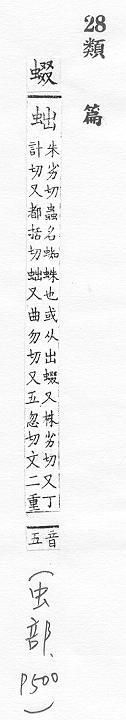 28類篇
蝃
䖦
朱劣切蟲名蜘蛛也或从出蝃又株劣切又丁
計切又都括切䖦又曲勿切又五忽切文二重
音
五
(虫部、P500)